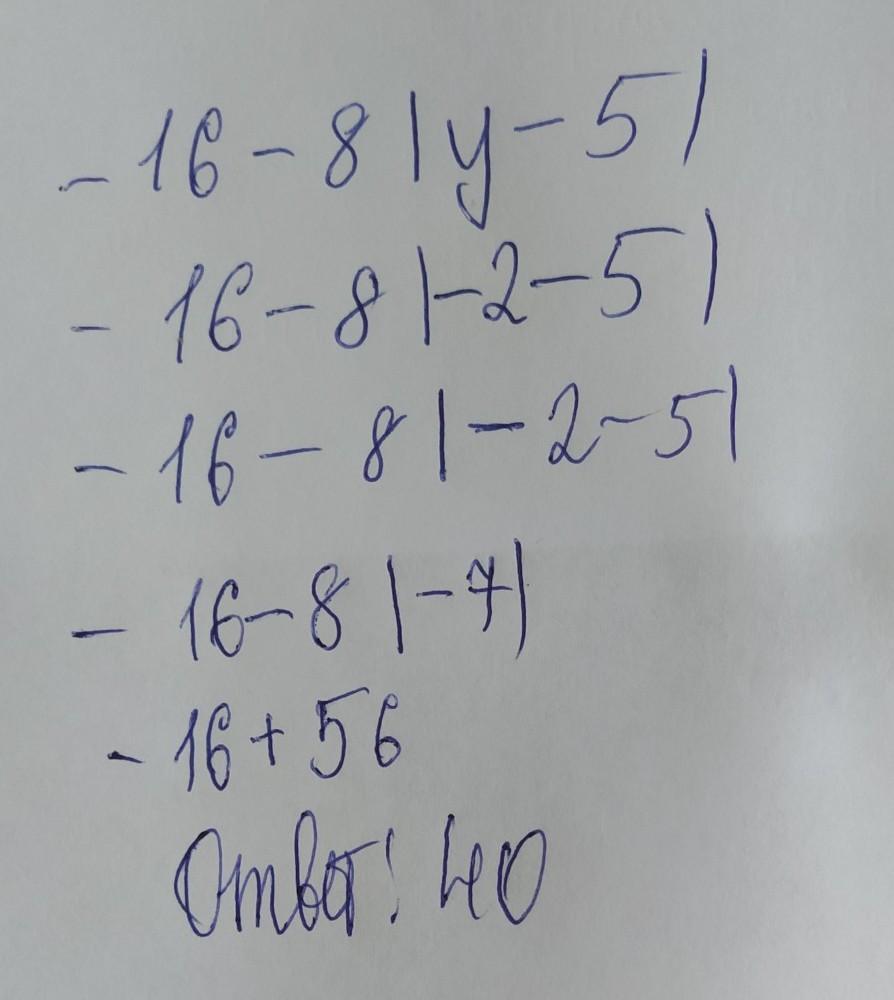 - 16 - 8 |y - 5|
- 16 - 8 |-2 - 5|
- 16 - 8 |- 2 - 5|
- 16 - 8 |-7|
- 16 + 56
Ответ: 40